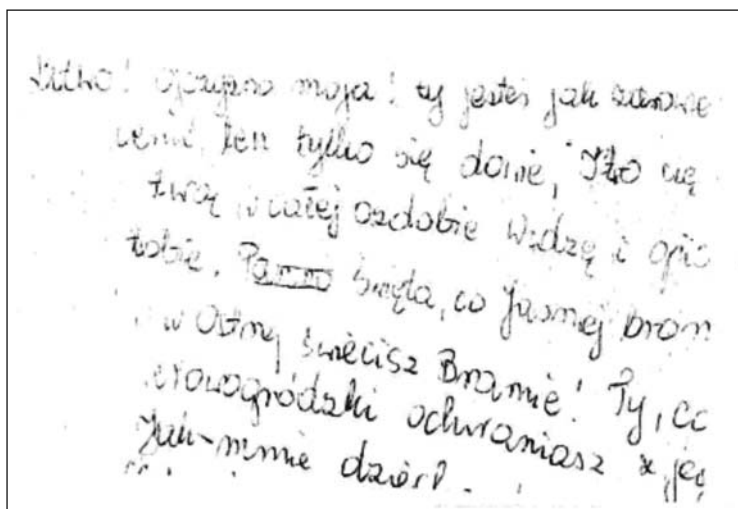 Litwo! Ojczyzno moja! ty jesteś jak zdrowie
cenić, ten tylko się dowie, Kto cię
twą w całej ozdobie Widzę i opis
tobie. Panno święta, co Jasnej bron
w Ostrej świecisz Bramie! Ty, co
nowogródzki ochraniasz z jej
Jak mnie dzieck